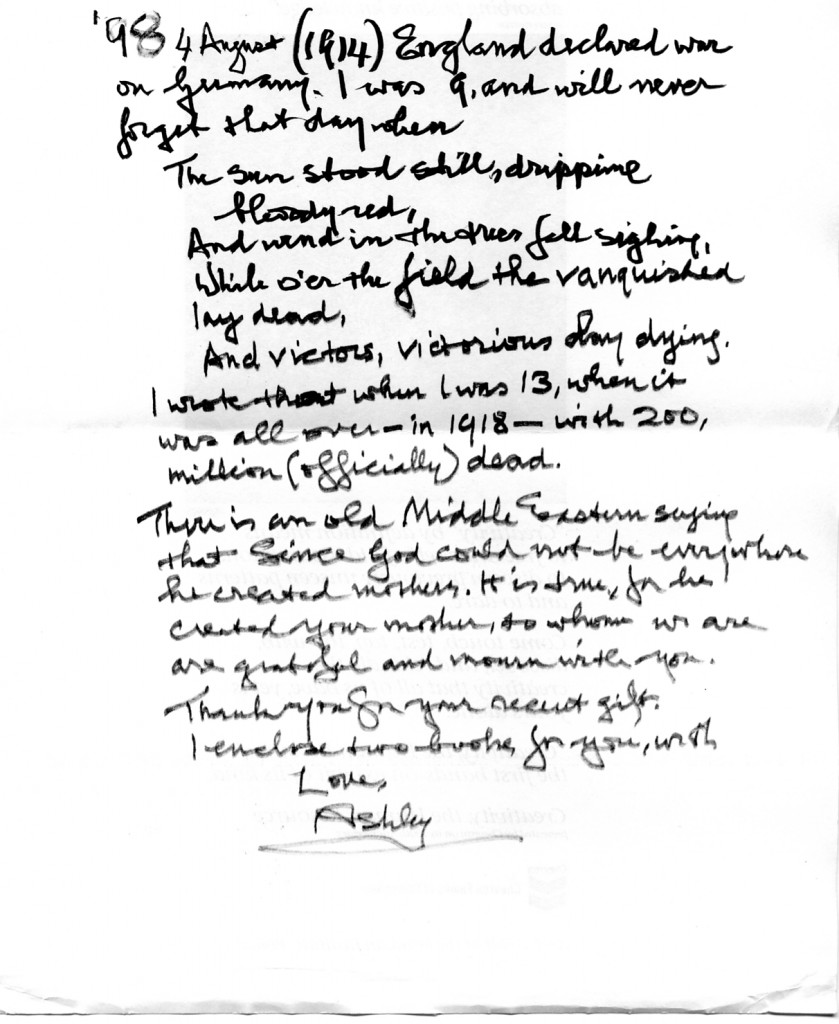 '98 4 August (1914) England declared war
on Germany. I was 9, and will never
forget that day when
The sun stood still, dripping
bloody red,
And wind in the trees fell sighing,
While o'er the field the vanquished
lay dead,
And victors, victorious day dying.
I wrote that when I was 13, when it
was all over – in 1918 – with 200,
million (officially) dead.
There is an old Middle Eastern saying
that Since God could not be everywhere
he created mothers. It is true, for he
created your mother, to whom we are
are grateful and mourn with you.
Thank you for your recent gift.
I enclose two books for you, with
Love,
Ashley